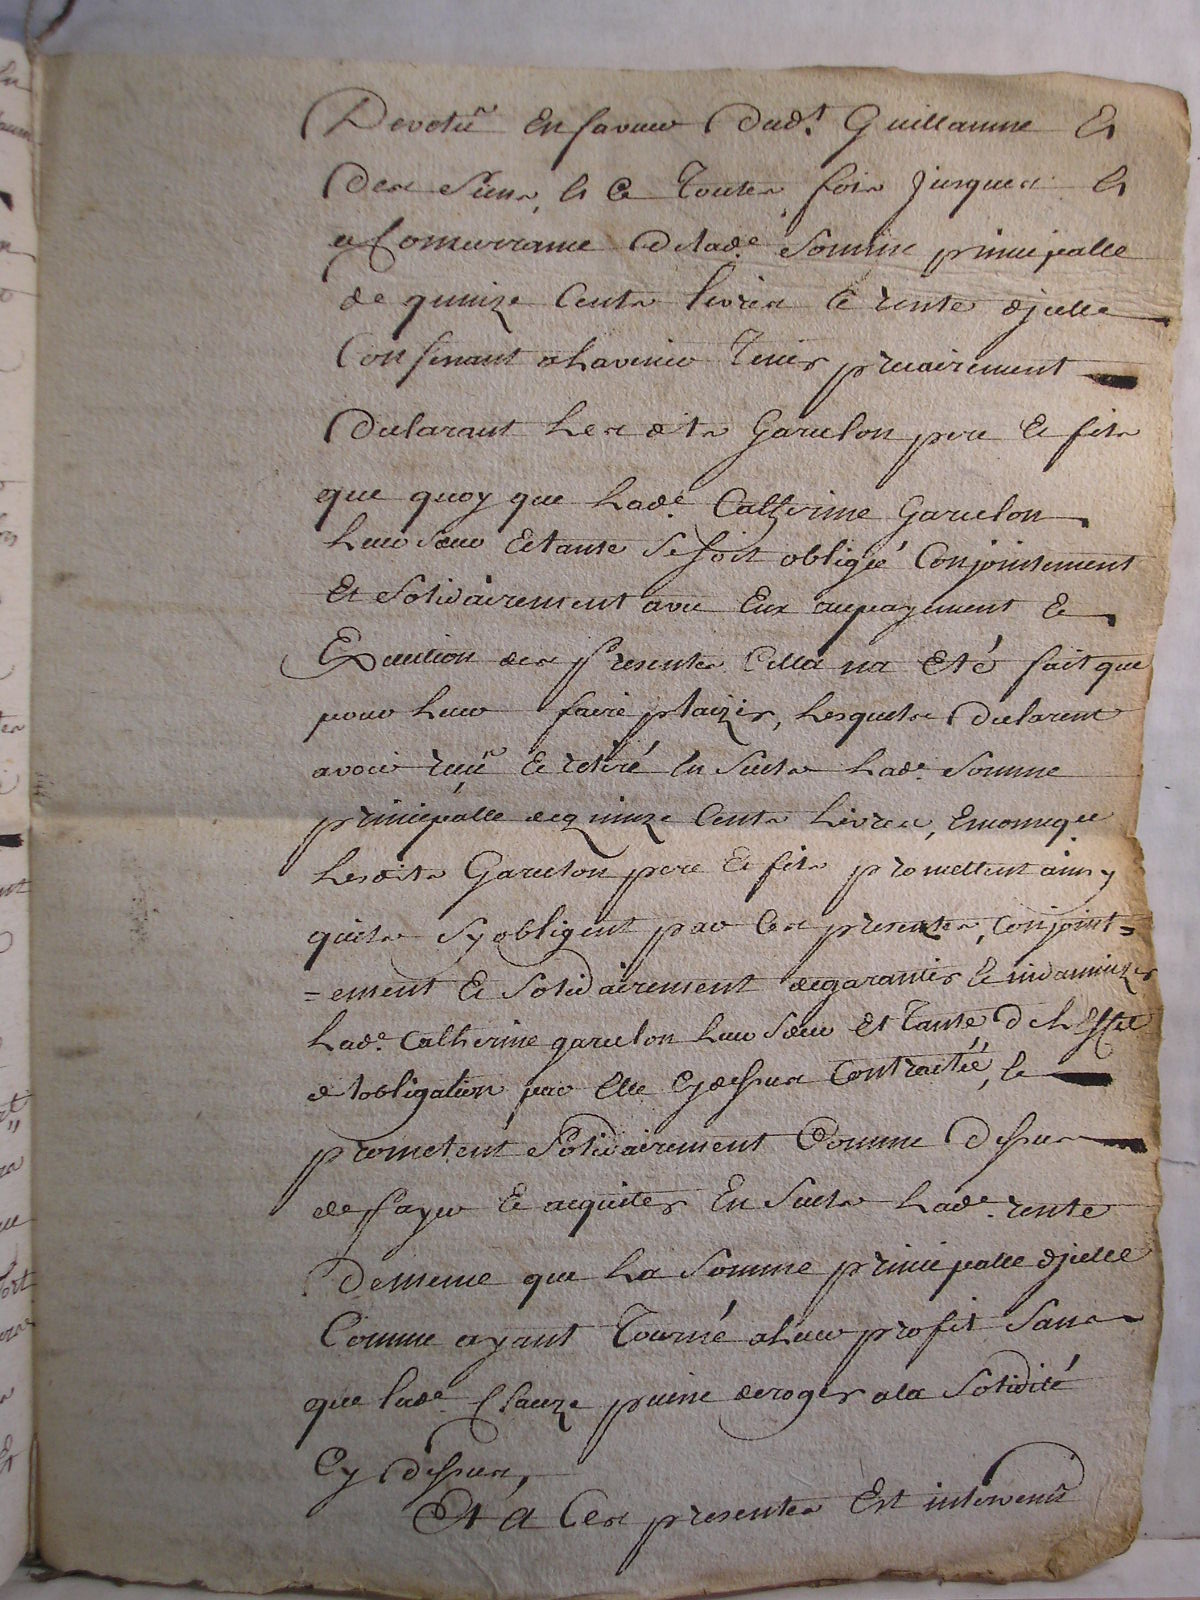 Devetir En faveur Dud.t Guillaume Et
Des Siens, Et Ce Toutes fois jusques Et
a Concurrance Delad.e Somme principalle
de quinze Cents livres Et rente djcelle
Consenant alavenir Tenir precairement
Declarant Les dits Garcelon pere Et fils
que quoy que Lad.e Catherine Garcelon
Leur Sœur Et tante Se soit obligée Conjointement
Et Solidairement avec Eux au payement Et
Execution des presentes Cella na Eté fait que
pour Leur faire plaizir, Lesquels Declarent
avoir reçu Et retiré En Seuls Lad.e Somme
principalle de quinze Cents Livres, En
Lesdits Garcelon pere Et fils promettent ainsy
quils Sy obligent par Ces presentes, Conjoint=
=ement Et Solidairement degarantir Et indamnizer
Lad.e Catherine garcelon Leur Sœur Et Tante De
dobligation par Elle Cydessus Contractée, Et
prometent Solidairement Comme Dessus
de payer Et acquiter En Seuls Lad.e rente
Demême que La Somme principalle djcelle
Comme ayant Tourné aLeur profit Sans
que lad.e Clauze puisse deroger ala Solidité
Cy Dessus,
Et A Ces presentes Est intervenu